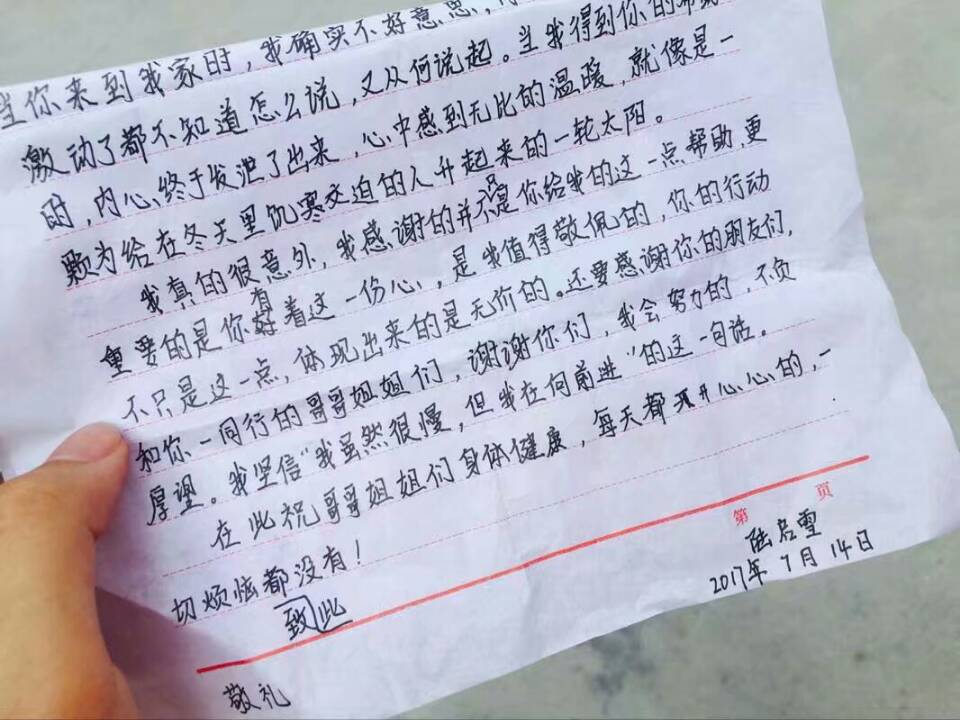 当你来到我家时，我确实不好意思，
激动了都不知道怎么说，又从何说起。当我得到你的帮助
时，内心终于发泄了出来，心中感到无比的温暖，就像是一
颗为给在冬天里饥寒交迫的人升起来的一轮太阳。
我真的很意外，我感谢的并不只是你给我的这一点帮助，更
重要的是你有着这一份心，是我值得敬佩的，你的行动
不只是这一点，体现出来的是无价的。还要感谢你的朋友们，
和你一同行的哥哥姐姐们，谢谢你们，我会努力的，不负
厚望。我坚信"我虽然很慢，但我在向前进"的这一句话。
在此祝哥哥姐姐们身体健康，每天都开开心心的，一
切烦恼都没有！
致此
敬礼
第 页
陆启雪
2017年7月14日